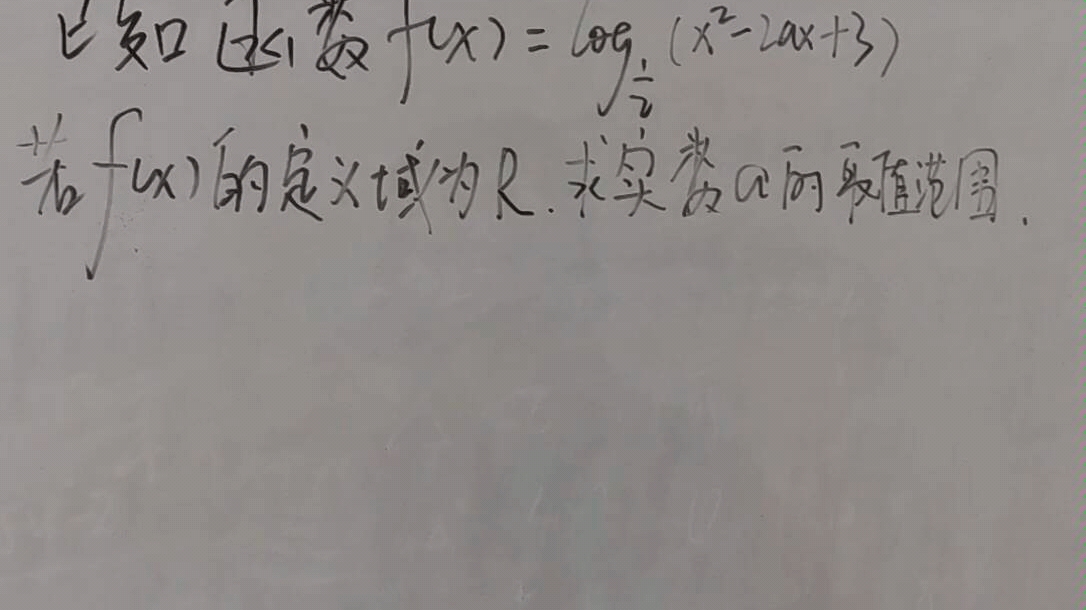 已知函数f(x)=log_{1/2}(x²-2ax+3)
若f(x)的定义域为R.求实数a的取值范围.